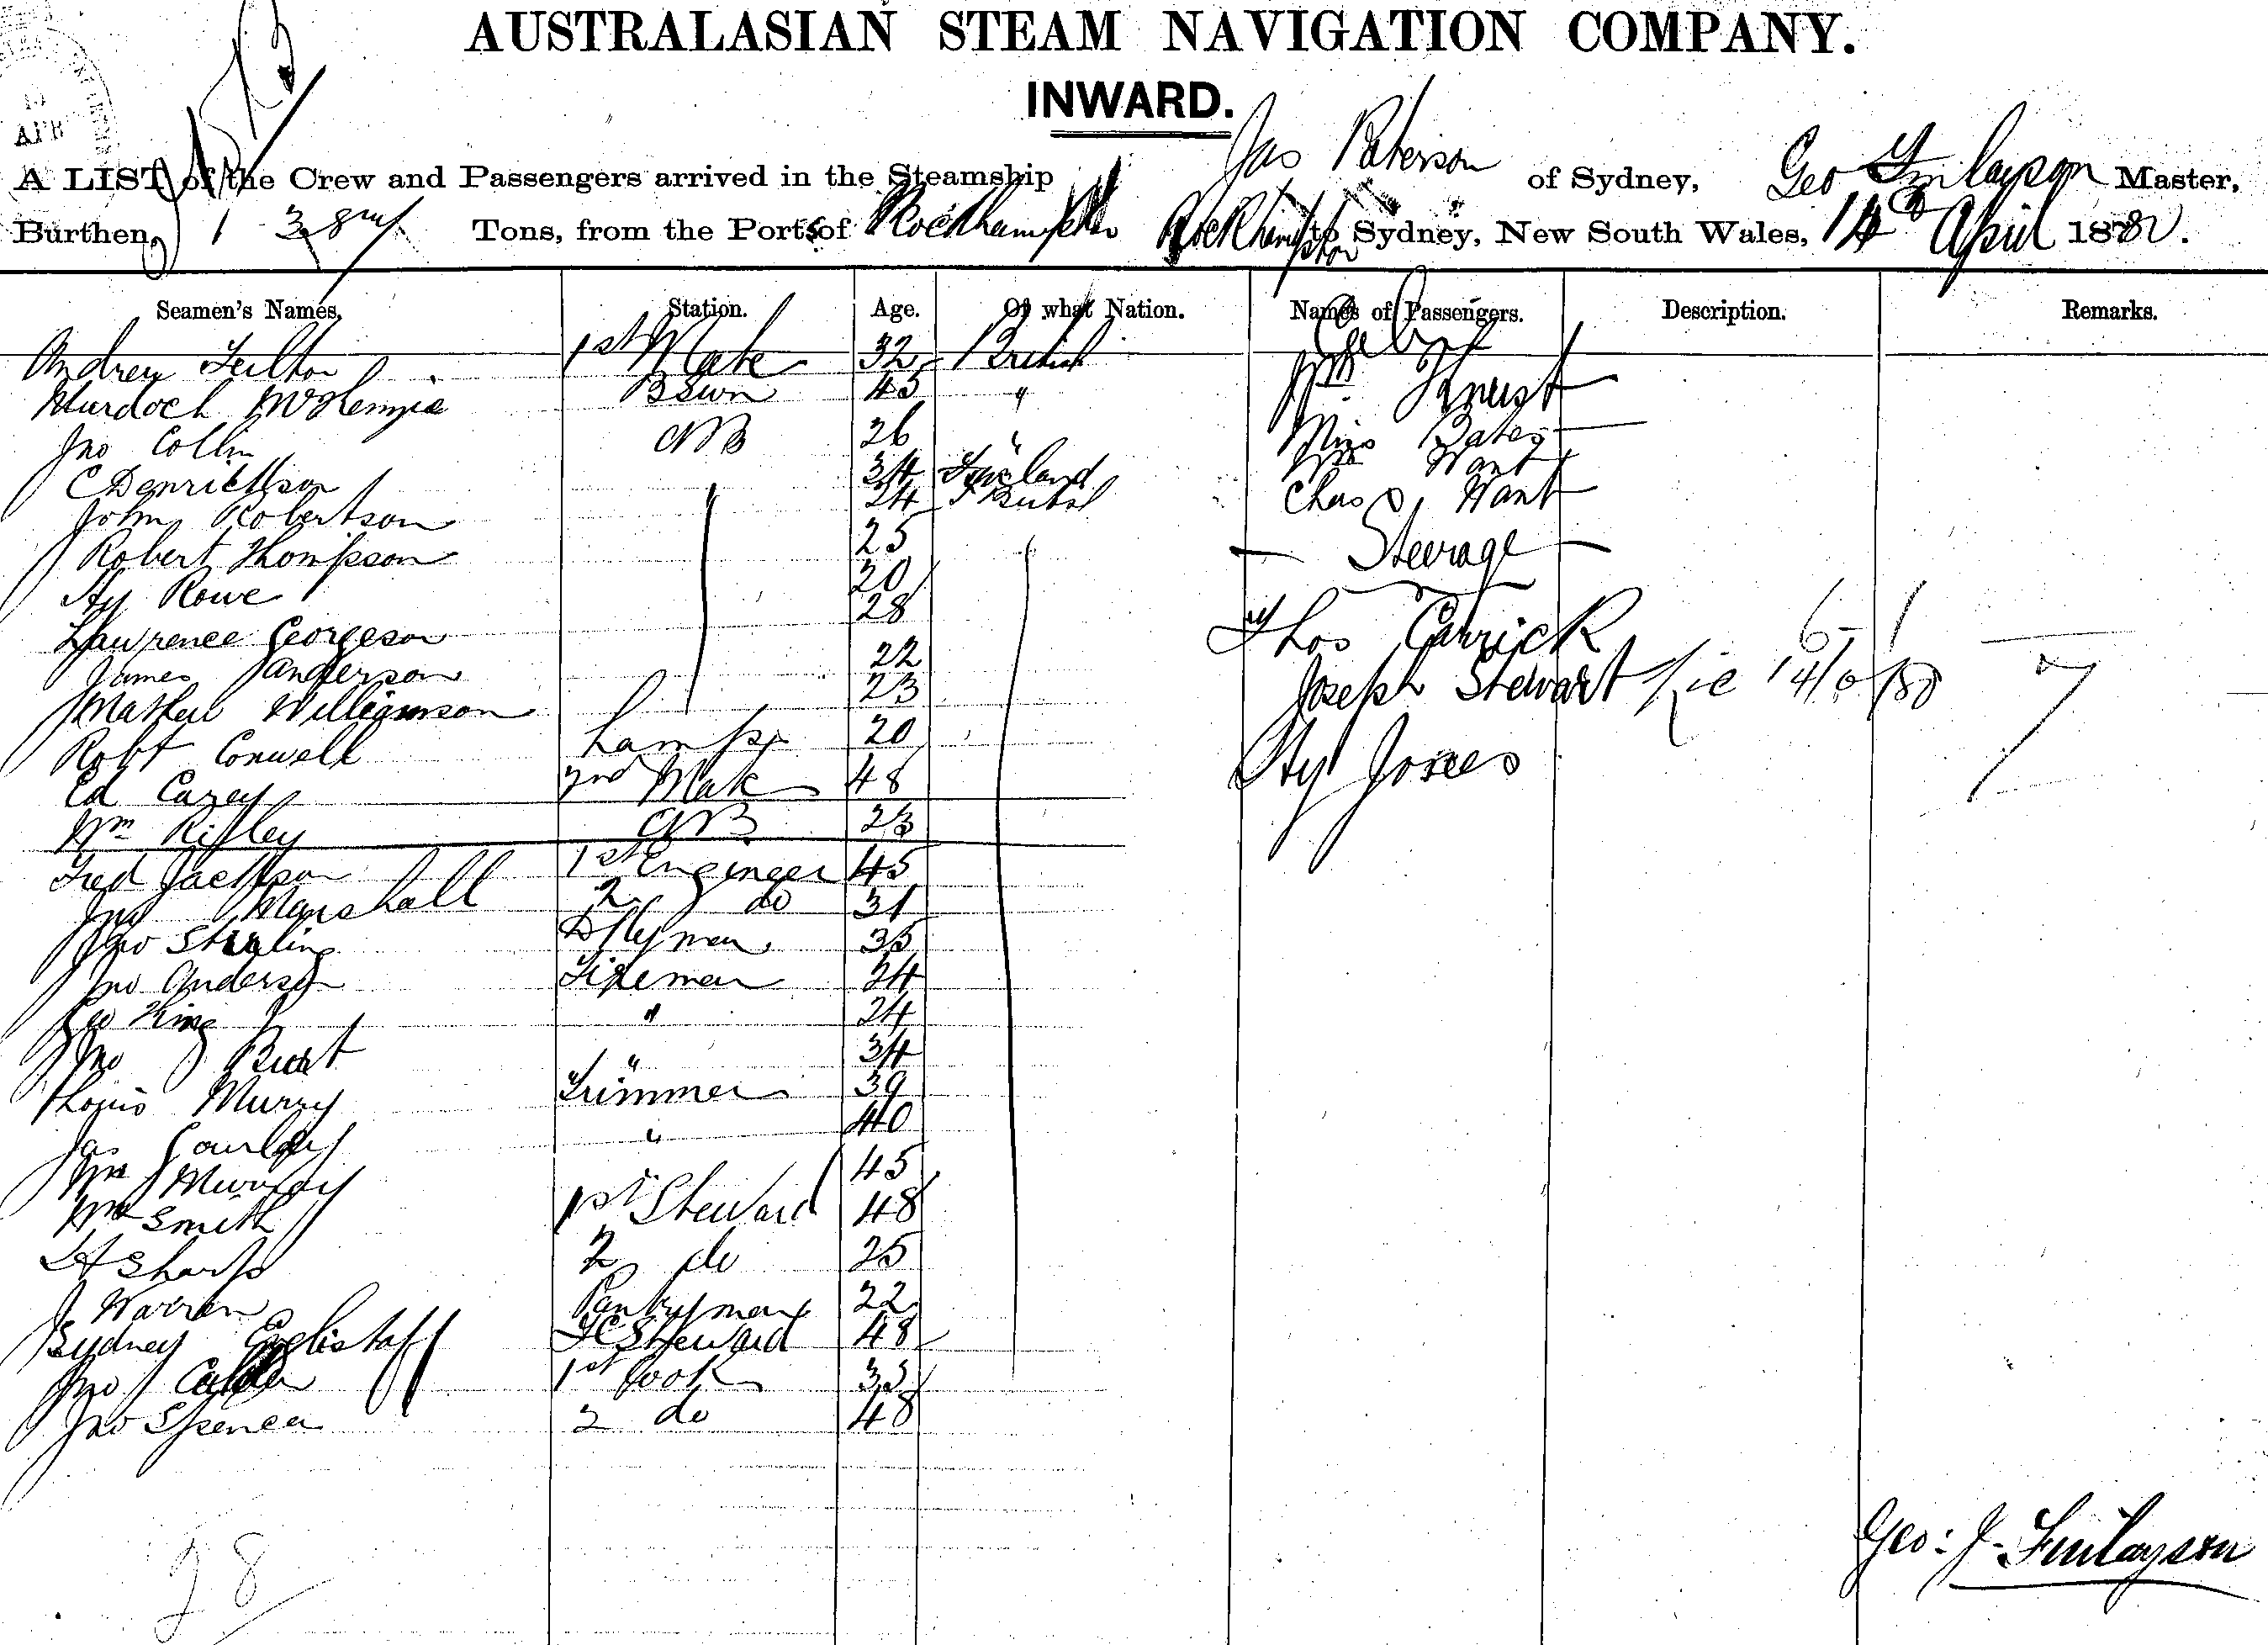 AUSTRALASIAN STEAM NAVIGATION COMPANY.
INWARD.
A LIST of the Crew and Passengers arrived in the Steamship Jas Paterson of Sydney, Geo Finlayson Master,
Burthen, Tons, from the Ports of Rockhampton to Sydney, New South Wales, April 1880.
Seamen's Names. Station. Age. Of what Nation. Names of Passengers. Description. Remarks.
Andrew Fulton 1st Mate 32 British
Murdoch McKenzie BSwn 45 "
Jno Collin AB 26 "
34
John Robertson 24 British
Robert Thompson 25
Hy Rowe 20
Lawrence Georgeson 28
James Sanderson 22
Mathew Williamson 23
Robt Conwell Lamps 20
Ed Carey 2nd Mate 48
Wm Ripley AB 23
Fred Jackson 1st Engineer 45
Jno Marshall 2 do 31
Geo Stirling 35
Jno Anderson Fireman 24
Geo King " 24
Jno Burt " 34
Murry Trimmer 39
Jas Gourlay " 40
Wm Murray 45
Wm Smith 1st Steward 48
H Sharp 2 do 25
J Warren Pantryman 22
Sydney Steward 48
Jno Calder 1st Cook 33
Jno Spencer 2 do 48
28
Mrs
Miss Bates
Want
Chas Want
Steerage
Thos Carrick
Joseph Stewart
Hy Jones
6-1
7
Geo: J. Finlayson